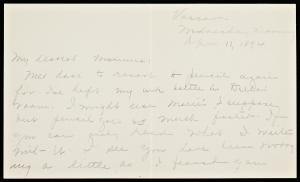 Vassar.
Wednesday
April 11, 1894
My dearest Mamma:
Must have to resort to pencil again
for I've left my ink bottle in
room. I might use I suppose,
but pencil goes so much faster. If
you can only read what I write
with it I see you have been
ing a little as I feared you